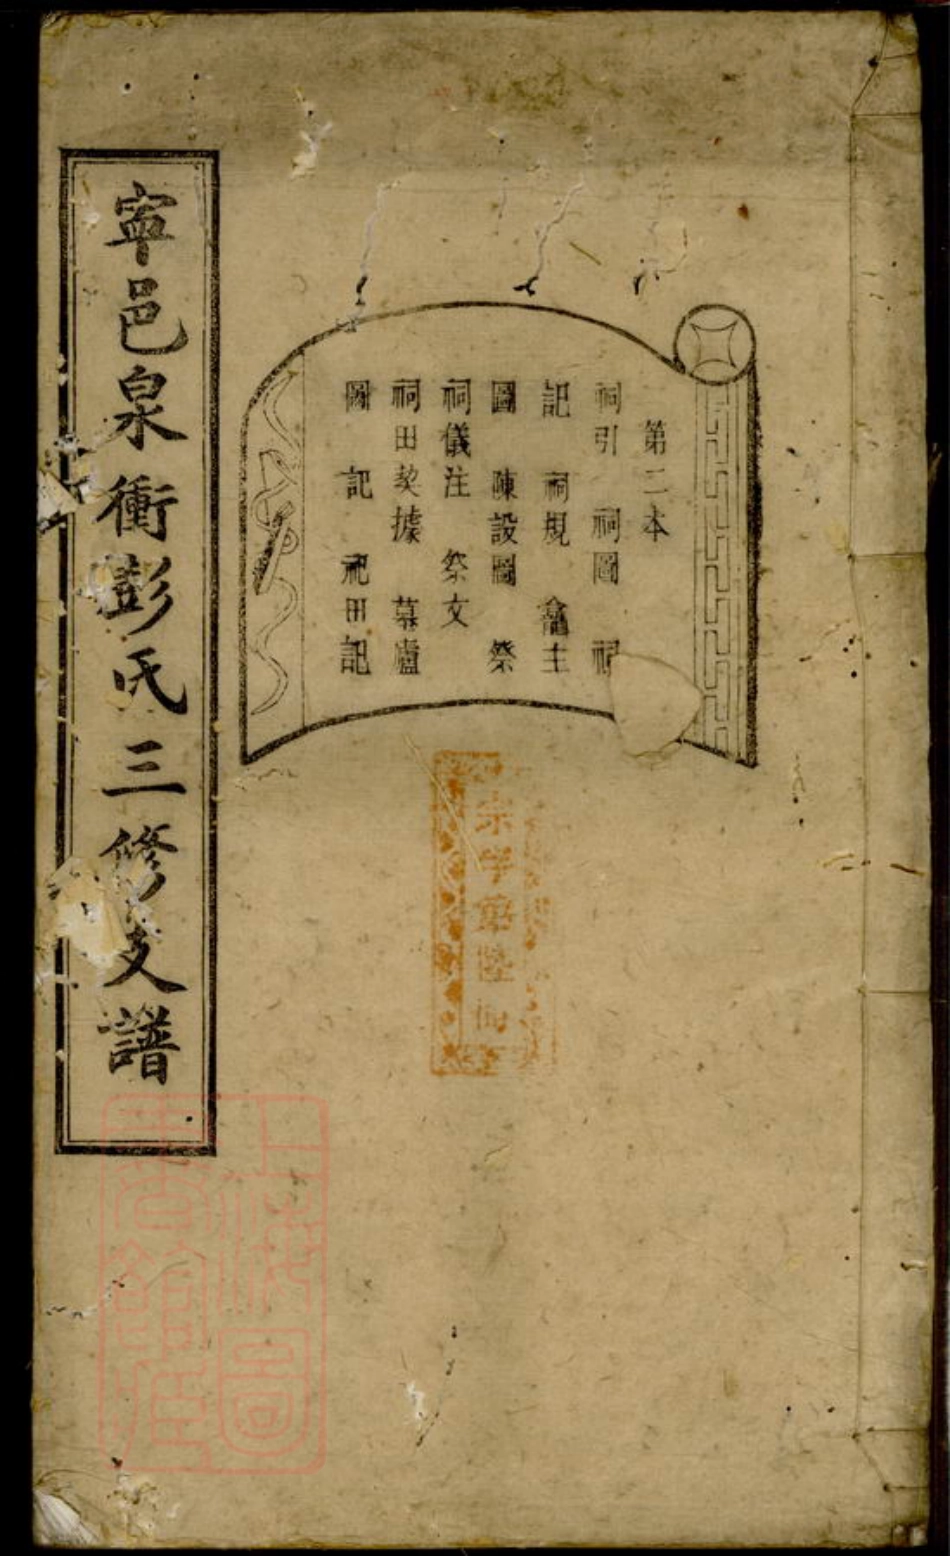 甯邑泉衝彭氏三修支譜
第二本
祠引 祠圖 祠
記 祠規 龕主
圖 陳設圖 祭
祠儀注 祭文
祠田契據 墓廬
圖記 祀田記
宗字第陸
上海圖書館藏